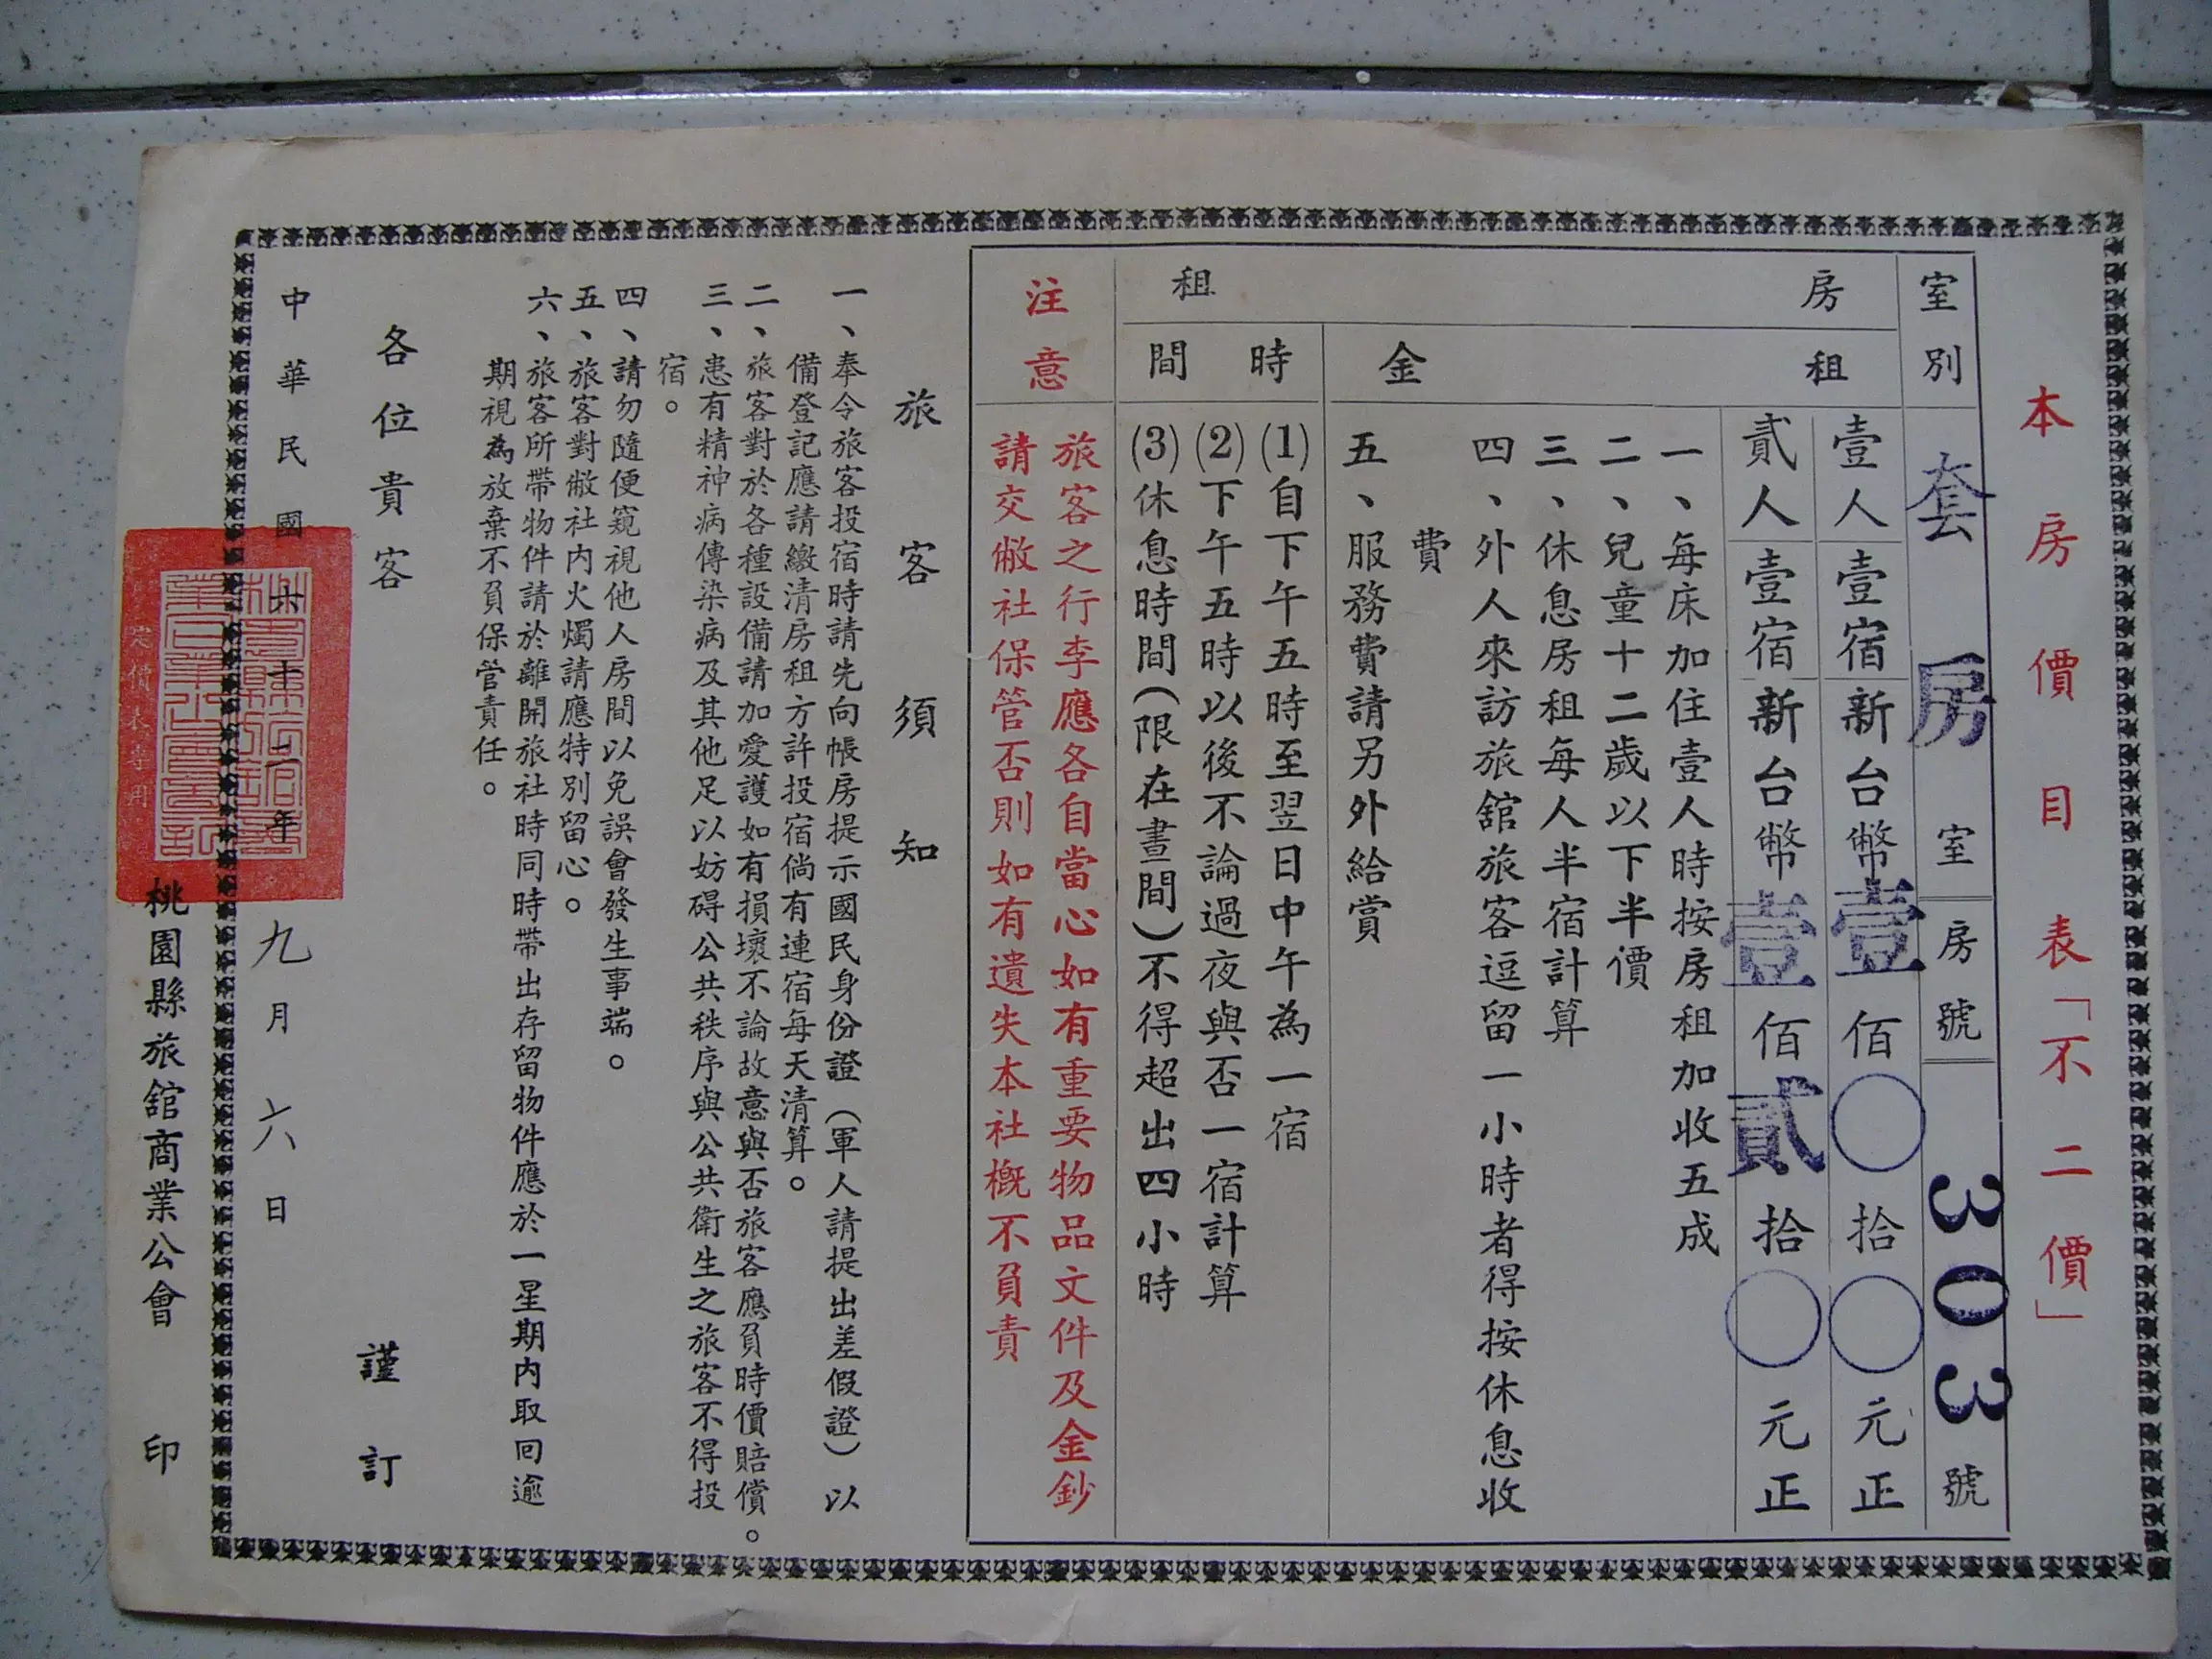 本房價目表「不二價」
室別 套房室 房號 303號
房租
租金
壹人壹宿新台幣壹佰○拾○元正
貳人壹宿新台幣壹佰貳拾○元正
一、每床加住壹人時按房租加收五成
二、兒童十二歲以下半價
三、休息房租每人半宿計算
四、外人來訪旅舘旅客逗留一小時者得按休息收
費
五、服務費請另外給賞
時間
(1)自下午五時至翌日中午為一宿
(2)下午五時以後不論過夜與否一宿計算
(3)休息時間(限在晝間)不得超出四小時
注意
旅客之行李應各自當心如有重要物品文件及金鈔
請交敝社保管否則如有遺失本社概不負責
旅客須知
一、奉令旅客投宿時請先向帳房提示國民身份證(軍人請提出差假證)以
備登記應請繳清房租方許投宿倘有連宿每天清算。
二、旅客對於各種設備請加愛護如有損壞不論故意與否旅客應負時價賠償。
三、患有精神病傳染病及其他足以妨碍公共秩序與公共衛生之旅客不得投
宿。
四、請勿隨便窺視他人房間以免誤會發生事端。
五、旅客對敝社內火燭請應特別留心。
六、旅客所帶物件請於離開旅社時同時帶出存留物件應於一星期內取回逾
期視為放棄不負保管責任。
各位貴客 謹訂
中華民國六十二年九月六日
定價表專用
桃園縣旅舘商業公會 印